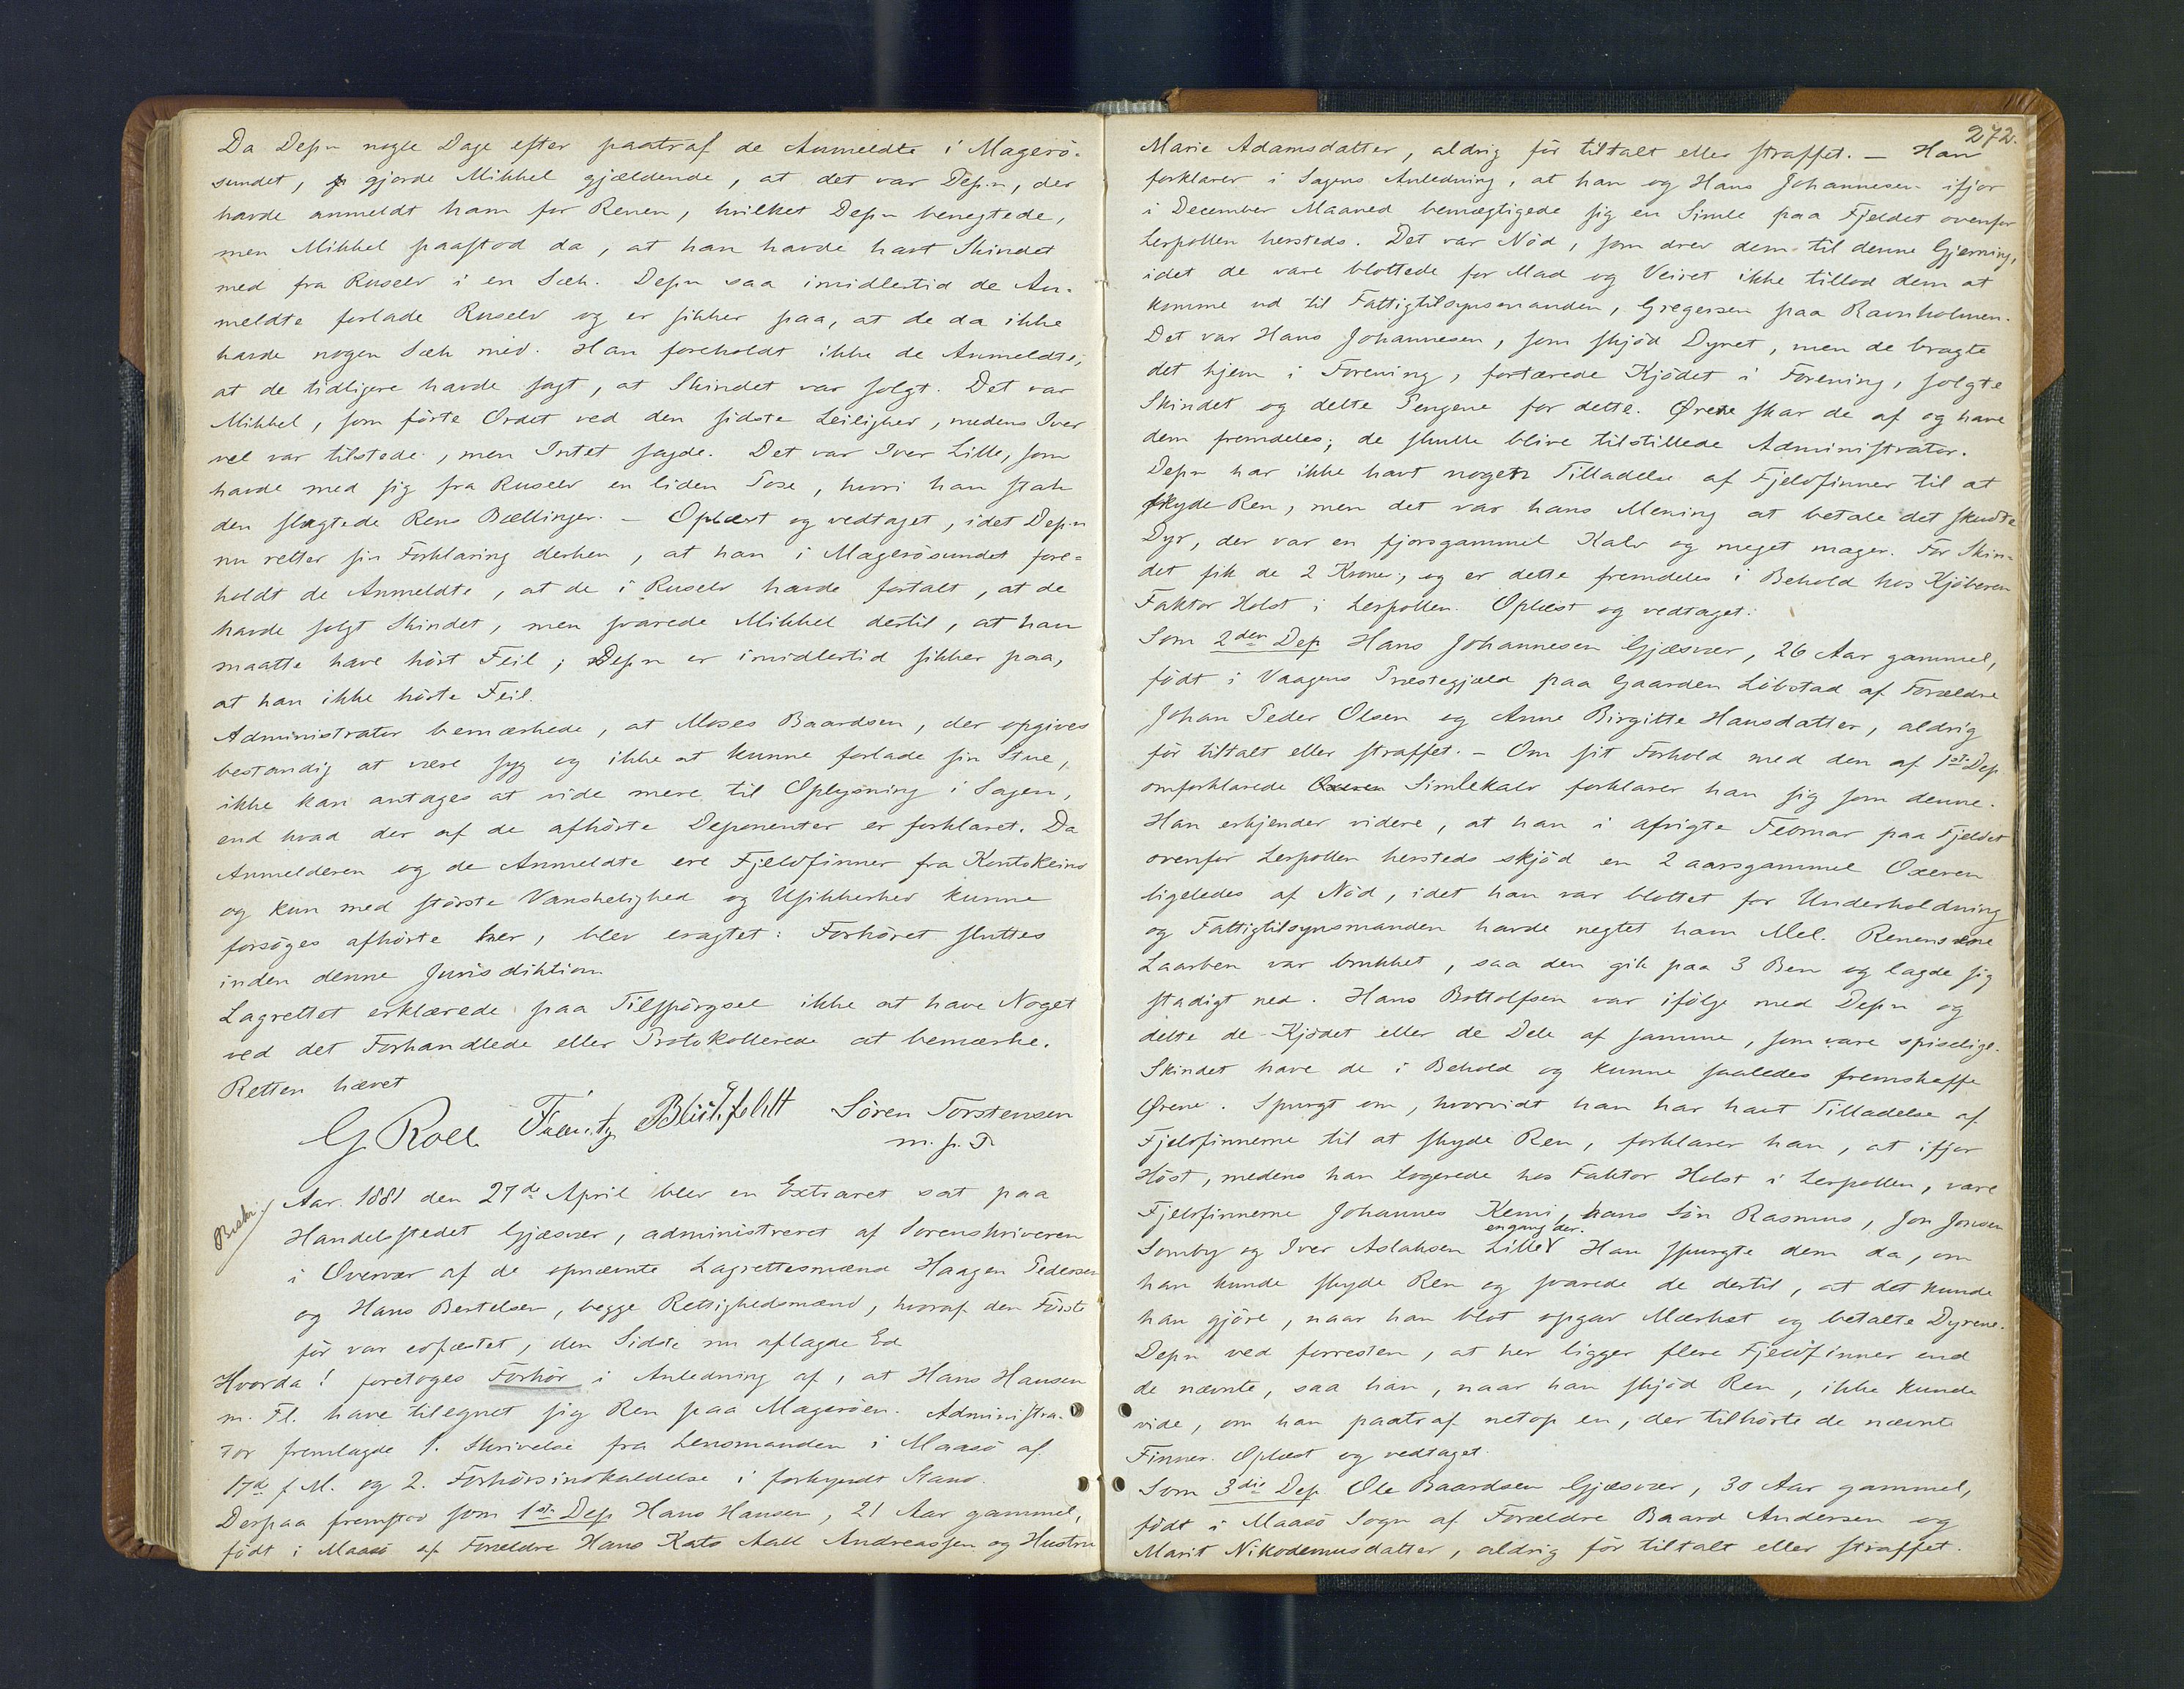 Da Depn nogle Dage efter paatraf de Anmeldte i Magerö-
sundet, gjorde Mikkel gjældende, at det var Depn, der
havde anmeldt ham for Renen, hvilket Depn benegtede,
men Mikkel paastod da, at han havde havt Skindet
med fra Ruselv i en Sæk. Depn saa imidlertid de An-
meldte forlade Ruselv og er sikker paa, at de da ikke
havde nogen Sæk med. Han foreholdt ikke de Anmeldte,
at de tidligere havde sagt, at Skindet var solgt. Det var
Mikkel, som förte Ordet ved den sidste Leilighed, medens Iver
vel var tilstede, men Intet sagde. Det var Iver Lille, som
havde med sig fra Ruselv en liden Pose, hvori han stak
den slagtede Rens Bællinger. – Oplæst og vedtaget, idet Depn
nu retter sin Forklaring derhen, at han i Magerösundet fore-
holdt de Anmeldte, at de i Ruselv havde fortalt, at de
havde solgt Skindet, men svarede Mikkel dertil, at han
maatte have hört Feil; Depn er imidlertid sikker paa,
at han ikke hörte Feil.
Administrator bemærkede, at Moses Baardsen, der opgives
bestandig at være syg og ikke at kunne forlade sin Stue,
ikke kan antages at vide mere til Oplysning i Sagen,
end hvad der af de afhörte Deponenter er forklaret. Da
Anmelderen og de Anmeldte ere Fjeldfinner fra Kontokeino
og kun med störste Vanskelighed og Usikkerhed kunne
forsöges afhörte her, blev eragtet: Forhöret sluttes
inden denne Jurisdiktion.
Lagrettet erklærede paa Tilspörgsel ikke at have Noget
ved det Forhandlede eller Protokollerede at bemærke.
Retten hævet
G Roll Søren Torstensen
m. p. P.
Aar 1881 den 27de April blev en Extraret sat paa
Handelsstedet Gjæsvær, administreret af Sorenskriveren
i Overvær af de opnævnte Lagrettesmænd Haagen Pedersen
og Hans Bertelsen, begge Rettighedsmænd, hvoraf den Förste
för var edfæstet, den Sidste nu aflagde Ed
Hvorda! foretoges Forhör i Anledning af, at Hans Hansen
m. Fl. have tilegnet sig Ren paa Magerøen. Administra-
tor fremlagde 1. Skrivelse fra Lensmanden i Maasö af
17de f. M. og 2. Forhörsindkaldelse i forkyndt Stand.
Derpaa fremstod som 1ste Dep Hans Hansen, 21 Aar gammel,
födt i Maasö af Forældre Hans Kato Aall Andreassen og Hustru
272.
Marie Adamsdatter, aldrig för tiltalt eller straffet. – Han
forklarer i Sagens Anledning, at han og Hans Johannesen ifjor
i December Maaned bemægtigede sig en Simle paa Fjeldet ovenfor
Lerpollen hersteds. Det var Nöd, som drev dem til denne Gjerning,
idet de vare blottede for Mad og Veiret ikke tillod dem at
komme ud til Fattigtilsynsmanden, Gregersen paa Ravnholmen.
Det var Hans Johannesen, som skjöd Dyret, men de bragte
det hjem i Forening, fortærede Kjödet i Forening, solgte
Skindet og delte Pengene for dette. Ørene skar de af og have
dem fremdeles; de skulle blive tilstillede Administrator.
Depn har ikke havt nogen Tilladelse af Fjeldfinner til at
skyde Ren, men det var hans Mening at betale det skudte
Dyr, der var en fjorsgammel Kalv og meget mager. For Skin-
det fik de 2 Kroner, og er dette fremdeles i Behold hos Kjöberen
Faktor Holst i Lerpollen. Oplæst og vedtaget.
Som 2den Dep Hans Johannesen Gjæsvær, 26 Aar gammel,
födt i Vaagens Præstegjæld paa Gaarden Löbstad af Forældre
Johan Peder Olsen og Anne Birgitte Hansdatter, aldrig
för tiltalt eller straffet. – Om sit Forhold med den af 1ste Dep
omforklarede Oxeren Simlekalv forklarer han sig som denne.
Han erkjender videre, at han i afvigte Februar paa Fjeldet
ovenfor Lerpollen hersteds skjöd en 2 aarsgammel Oxeren
ligeledes af Nöd, idet han var blottet for Underholdning
og Fattigtilsynsmanden havde negtet ham Mel. Renens ene
Laarben var brukket, saa den gik paa 3 Ben og lagde sig
stadigt ned. Hans Bottolfsen var ifölge med Depn og
delte de Kjödet eller de Dele af samme, som vare spiselige.
Skindet have de i Behold og kunne saaledes fremskaffe
Ørene. Spurgt om, hvorvidt han har havt Tilladelse af
Fjeldfinnerne til at skyde Ren, forklarer han, at ifjor
Höst, medens han logerede hos Faktor Holst i Lerpollen, vare
Fjeldfinnerne Johannes Kemi, hans Sön Rasmus, Jon Jonsen
engang der.
Somby og Iver Aslaksen Lille Han spurgte dem da, om
han kunde skyde Ren og svarede de dertil, at det kunde
han gjöre, naar han blot opgav Mærket og betalte Dyrene.
Depn ved forresten, at her ligger flere Fjeldfinner end
de nævnte, saa han, naar han skjöd Ren, ikke kunde
vide, om han paatraf netop en, der tilhörte de nævnte
Finner. Oplæst og vedtaget.
Som 3die Dep Ole Baardsen Gjæsvær, 30 Aar gammel,
födt i Maasö Sogn af Forældre Baard Andersen og
Marit Nikodemusdatter, aldrig för tiltalt eller straffet.